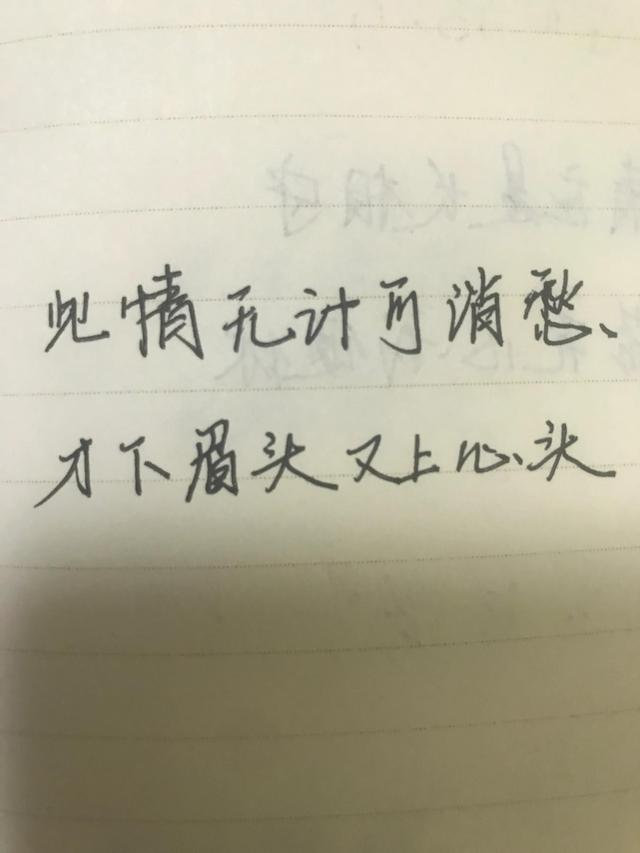 此情无计可消愁、
才下眉头又上心头